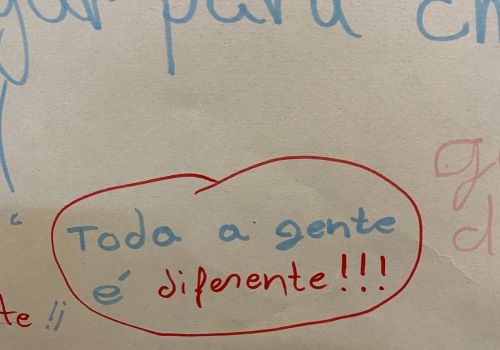 para
Toda a gente
é diferente!!!
te !!